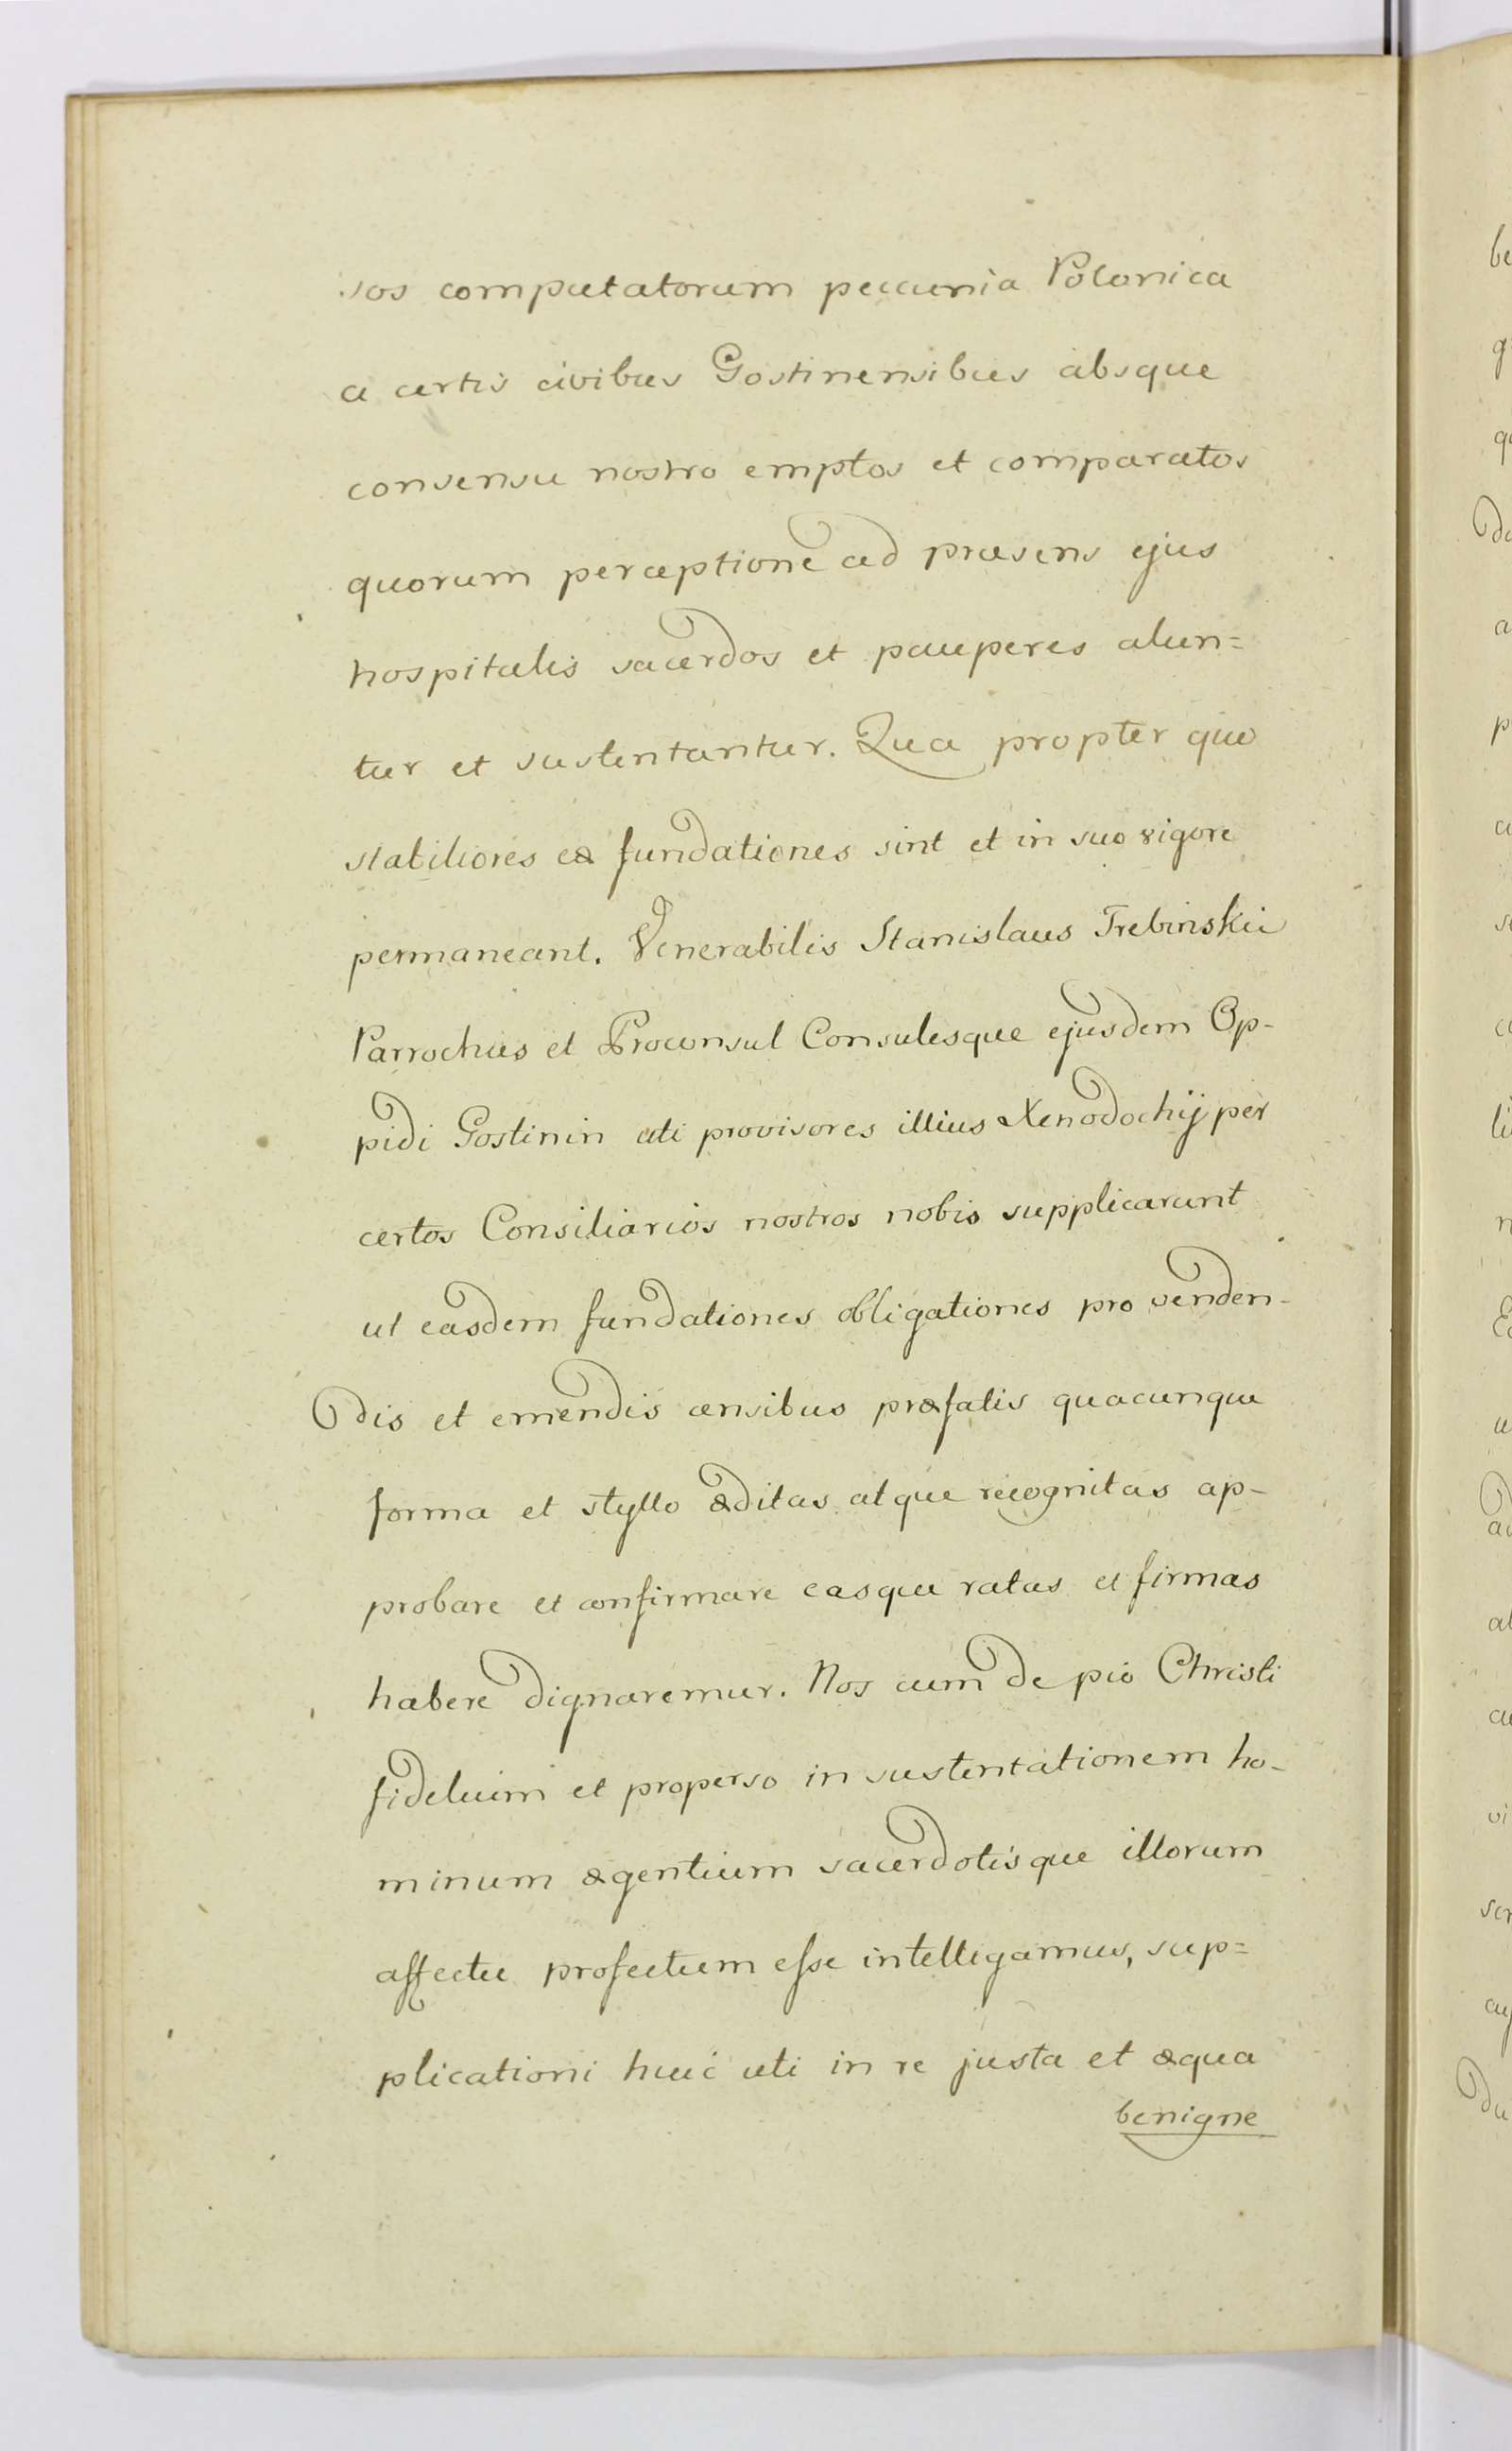 sos computatorum peccunia Polonica
a certis civibus Gostinensibus absque
consensu nostro emptos et comparatos
quorum perceptione ad præsens ejus
hospitalis sacerdos et pauperes alun=
tur et sustentantur. Qua propter quo
stabiliores eæ fundationes sint et in suo vigore
permaneant. Venerabilis Stanislaus Trebinskii
Parrochus et Proconsul Consulesque ejusdem Op-
pidi Gostinin uti provisores illius Xenodochij per
certos Consiliarios nostros nobis supplicarunt
ut easdem fundationes obligationes pro venden-
dis et emendis censibus præfatis quacunque
forma et styllo æditas atque recognitas ap-
probare et confirmare easque ratas et firmas
habere dignaremur. Nos cum de pio Christi
fidelium et properso in sustentationem ho-
minum ægentium sacerdotisque illorum
affectu profectum esse intelligamus, sup=
plicationi huic uti in re justa et æqua
benigne